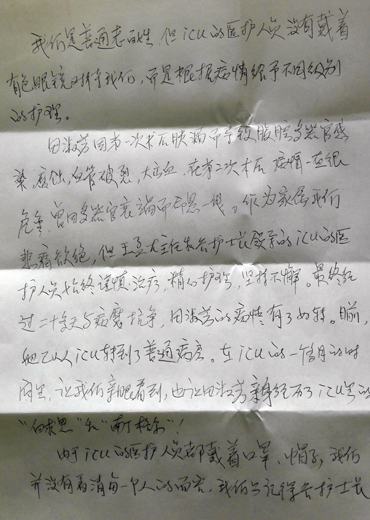 我们是普通老百姓，但icu的医护人员没有戴着
有色眼镜对待我们，而是根据病情给予不同级别
的护理。
田淑芳因第一次术后胰漏而导致腹腔多处感
染、腐蚀，血管破裂，大出血，在第二次术后病情一直很
危重，曾因多脏器衰竭而命悬一线。作为家属我们
悲痛欲绝，但王主任和护士长带领的icu的医
护人员始终谨慎治疗，精心护理，坚持不懈。最终经
过二十多天与病魔抗争，田淑芳的病情有了好转。目前，
她已从icu转到了普通病房。在icu的一个月的时
间里，让我们亲眼看到，也让田淑芳亲身经历了icu里的
“白求恩”和“南丁格尔”！
由于icu的医护人员都戴着口罩、帽子，我们
并没有看清每一个人的面容，我们只记得护士长